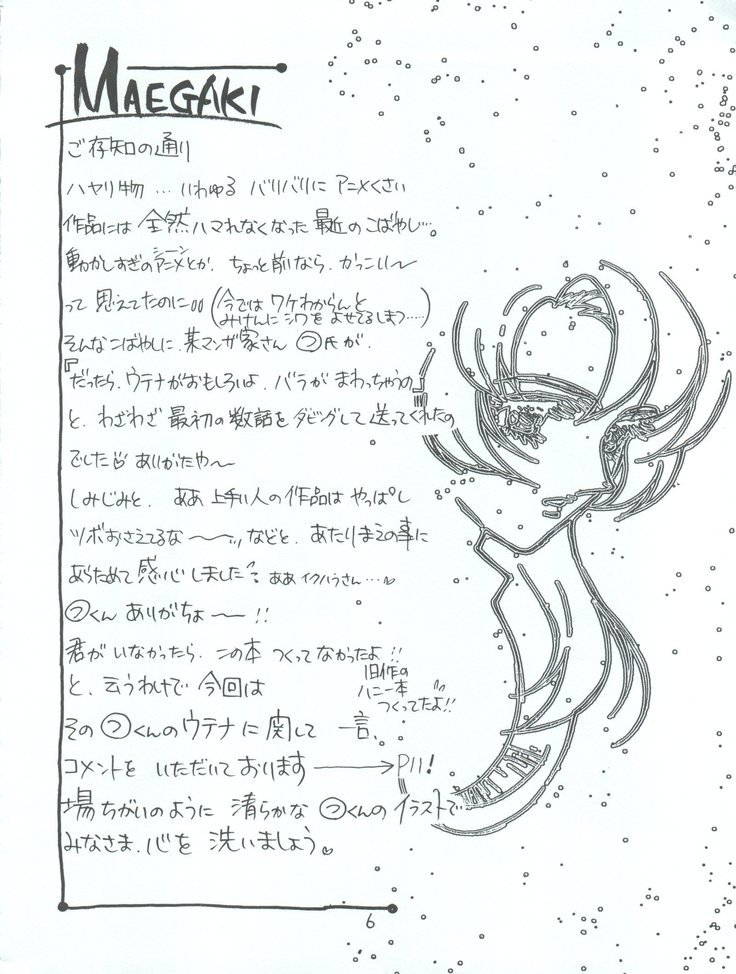 MAEGAKI
ご存知の通り
ハヤリ物…いわゆる バリバリに アニメくさい
作品には 全然ハマれなくなった 最近のこばやし…。
動かしすぎのアニメとか、ちょっと前なら、かっこい〜
シーン
って 思えてたのに(今では ワケわからんと
みけんに シワを よせてるしまつ……)
そんなこばやしに、某マンガ家さん つ氏が、
『だったら、ウテナがおもしろいよ、バラが まわっちゃうの』
と、わざわざ 最初の数話を ダビングして送ってくれたの
でした ありがたや〜
しみじみと、ああ 上手い人の作品は やっぱし
ツボおさえてるな〜〜ッなどと、あたりまえの事に
あらためて 感心しました ああ イクハラさん…
つくん ありがちょ〜!!
君が いなかったら、この本 つくってなかったよ!!
旧作の
ハニー本
つくってたよ!!
と、云うわけで 今回は
その つくんのウテナに関して 一言、
コメントを いただいております → P11!
場ちがいのように 清らかな つくんの イラストで
みなさま、心を 洗いましょう。
6